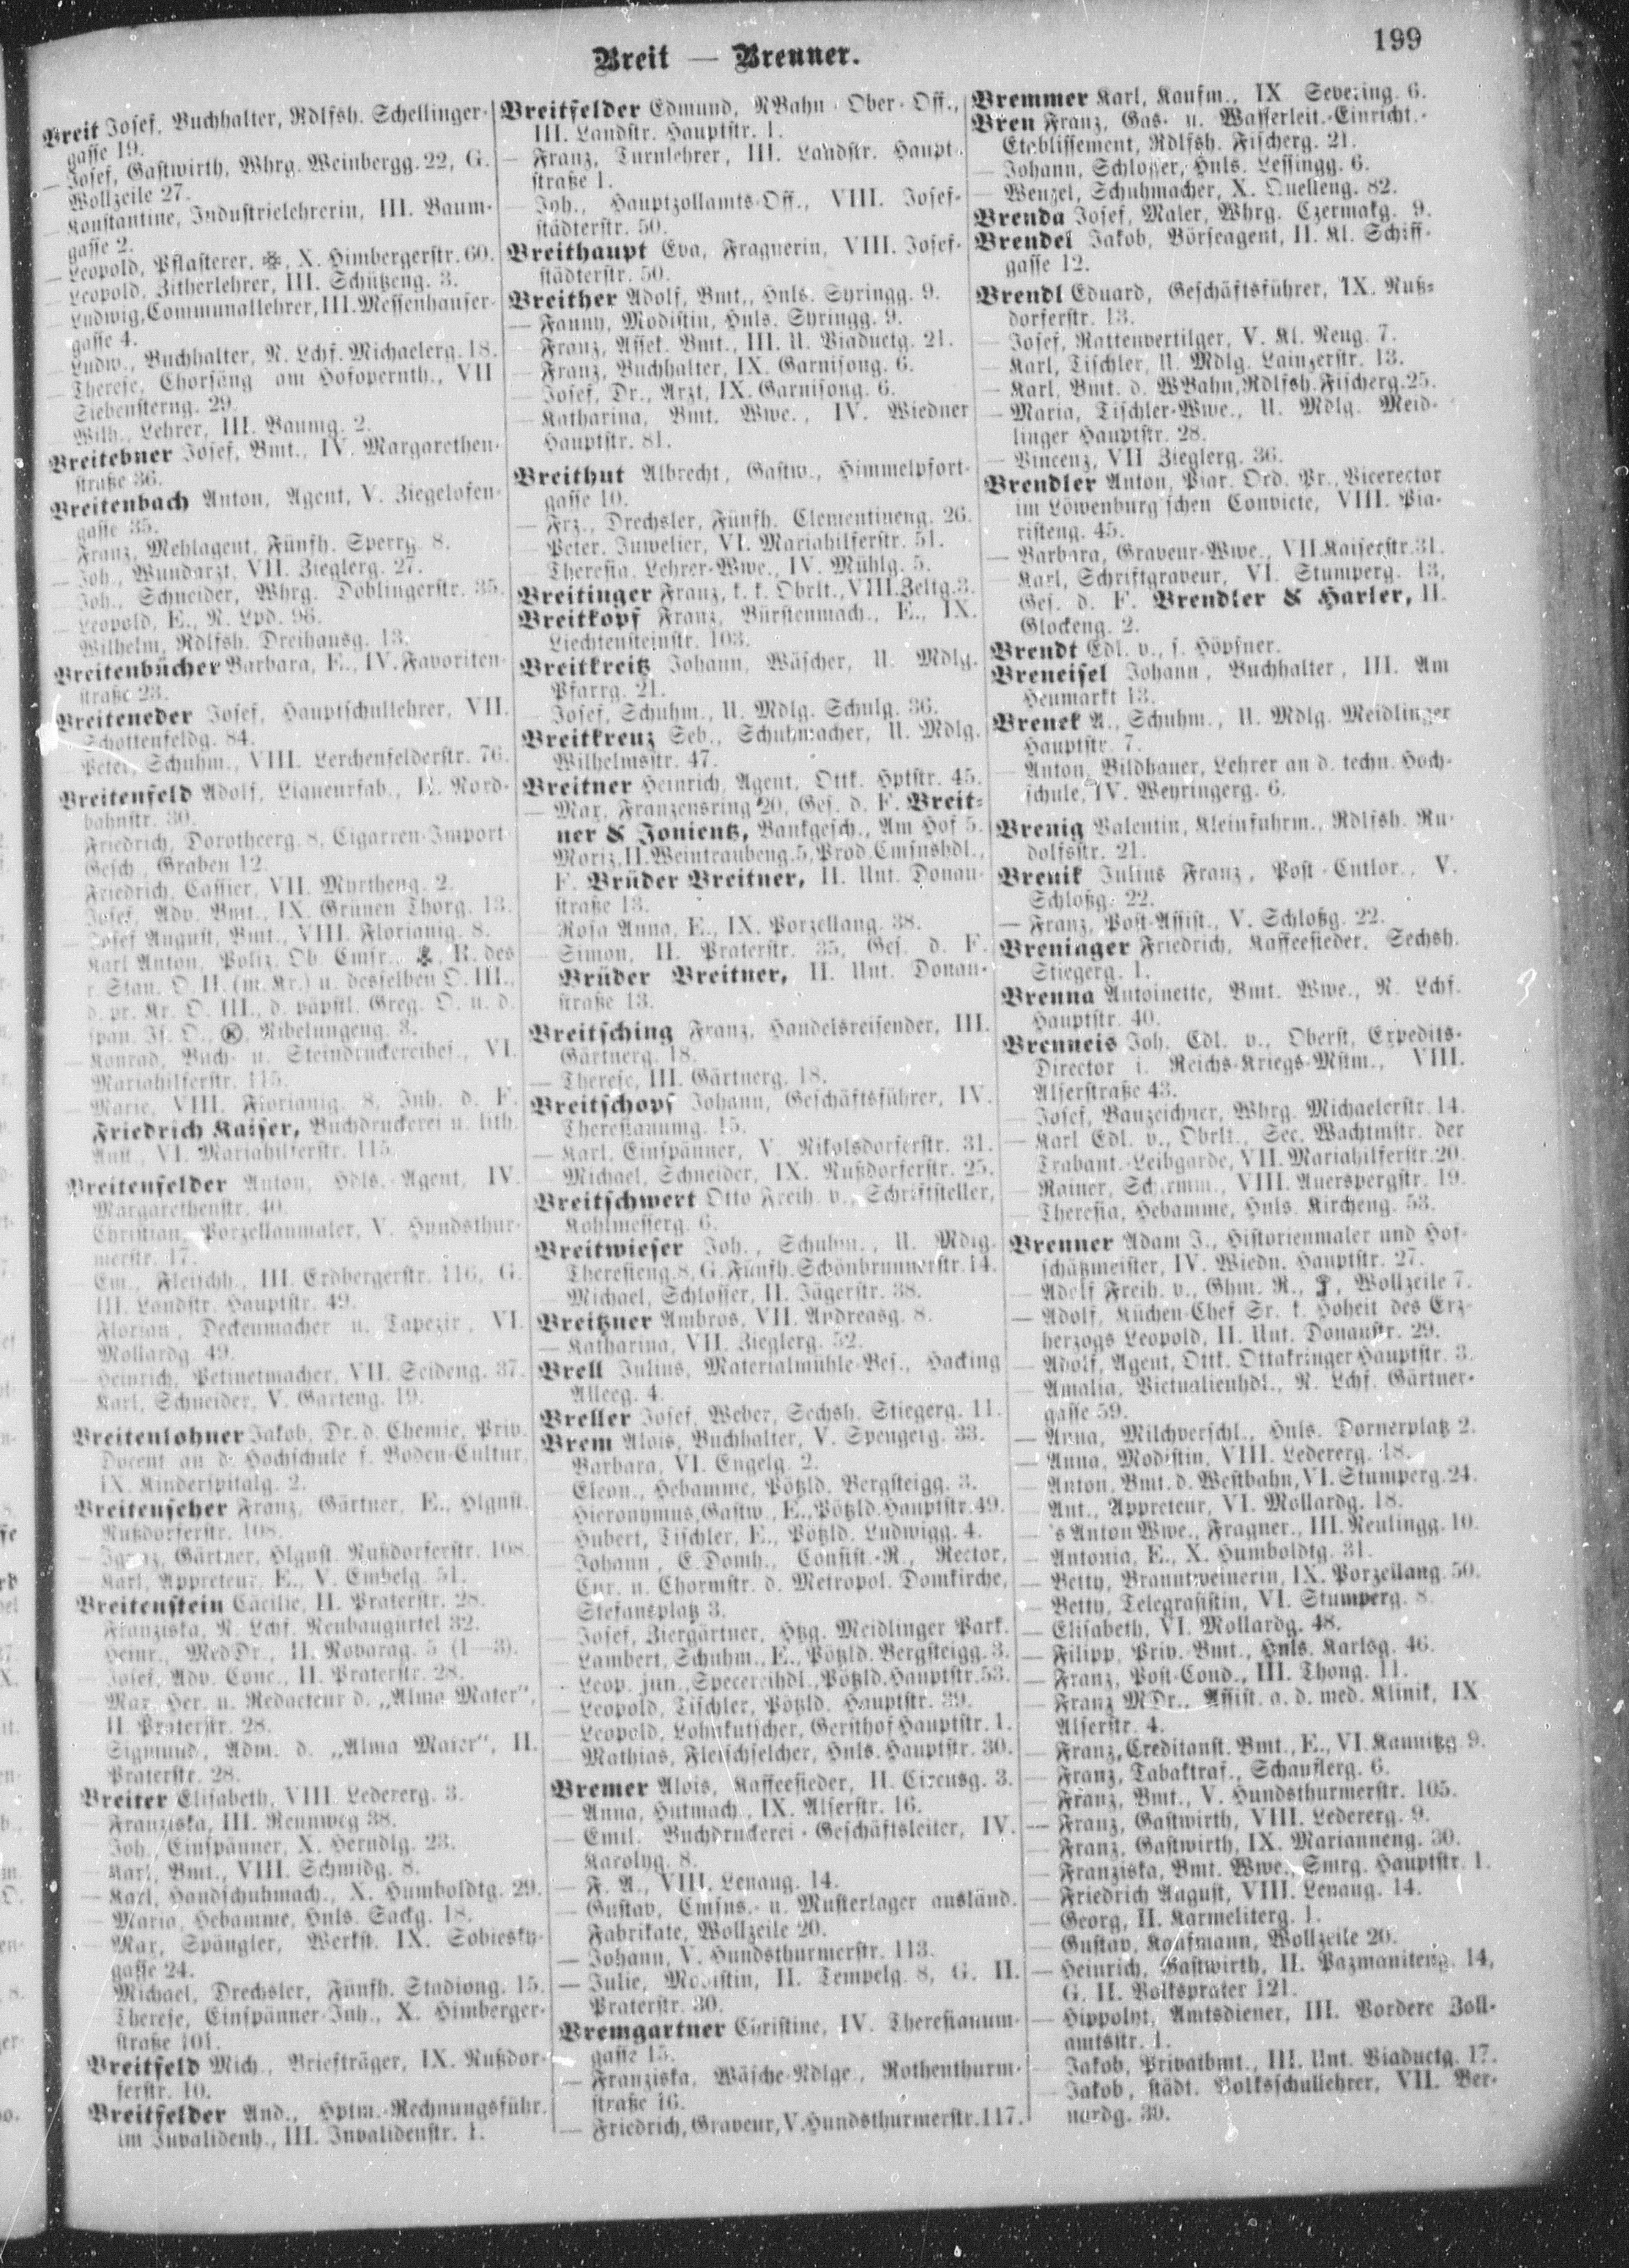 Breit — Brenner.
199
Breit Josef, Buchhalter, Rdlfsh. Schellinger-
gasse 19.
— Josef, Gastwirth, Whrg. Weinbergg. 22, G.
Wollzeile 27.
— Konstantine, Industrielehrerin, III. Baum-
gasse 2.
— Leopold, Pflasterer, X. Himbergerstr. 60.
— Leopold, Zitherlehrer, III. Schützeng. 3.
— Ludwig, Communallehrer, III. Messenhauser-
gasse 4.
— Ludw., Buchhalter, N. Lchf. Michaelerg. 18.
— Therese, Chorsäng am Hofopernth., VII
Siebensterng. 29.
— Wilh., Lehrer, III. Baumg. 2.
Breitebner Josef, Bmt., IV. Margarethen-
straße 36.
Breitenbach Anton, Agent, V. Ziegelofen-
gasse 35.
— Franz, Mehlagent, Fünfh. Sperrg. 8.
— Joh., Wundarzt, VII. Zieglerg. 27.
— Joh., Schneider, Whrg. Döblingerstr. 35.
— Leopold, E., N. Lpd. 96.
— Wilhelm, Rdlfsh. Dreihausg. 13.
Breitenbücher Barbara, E., IV. Favoriten-
straße 23.
Breiteneder Josef, Hauptschullehrer, VII.
Schottenfeldg. 84.
— Peter, Schuhm., VIII. Lerchenfelderstr. 76.
Breitenfeld Adolf, Liqueurfab., II. Nord-
bahnstr. 30.
— Friedrich, Dorotheerg. 8, Cigarren-Import
Gesch., Graben 12.
— Friedrich, Cassier, VII. Myrtheng. 2.
— Josef, Adv. Bmt., IX. Grünen Thorg. 13.
— Josef August, Bmt., VIII. Florianig. 8.
— Karl Anton, Poliz. Ob. Cmsr., R. des
r. Stan. O. II. (m. Kr.) u. desselben O. III.,
d. pr. Kr. O. III., d. päpstl. Greg. O. u. d.
span. Is. O., Nibelungeng. 3.
— Konrad, Buch- u. Steindruckereibes., VI.
Mariahilferstr. 115.
— Marie, VIII. Florianig. 8, Inh. d. F.
Friedrich Kaiser, Buchdruckerei u. lith.
Anst., VI. Mariahilferstr. 115.
Breitenfelder Anton, Hdls.-Agent, IV.
Margarethenstr. 40.
— Christian, Porzellanmaler, V. Hundsthur-
merstr. 17.
— Em., Fleischh., III. Erdbergerstr. 116, G.
III. Landstr. Hauptstr. 49.
— Florian, Deckenmacher u. Tapezir, VI.
Mollardg. 49.
— Heinrich, Petinetmacher, VII. Seideng. 37.
— Karl, Schneider, V. Garteng. 19.
Breitenlohner Jakob, Dr. d. Chemie, Priv.
Docent an d. Hochschule f. Boden-Cultur,
IX. Kinderspitalg. 2.
Breitenscher Franz, Gärtner, E., Hlgnst.
Nußdorferstr. 108.
— Ignaz, Gärtner, Hlgnst. Nußdorferstr. 108.
— Karl, Appreteur, E., V. Embelg. 51.
Breitenstein Cäcilie, II. Praterstr. 28.
— Franziska, N. Lchf. Neubaugürtel 32.
— Heinr., MedDr., II. Novarag. 5 (1—3).
— Josef, Adv. Conc., II. Praterstr. 28.
— Max, Her. u. Redacteur d. „Alma Mater“,
II. Praterstr. 28.
— Sigmund, Adm. d. „Alma Mater“, II.
Praterstr. 28.
Breiter Elisabeth, VIII. Ledererg. 3.
— Franziska, III. Rennweg 38.
— Joh., Einspänner, X. Herndlg. 23.
— Karl, Bmt., VIII. Schmidg. 8.
— Karl, Handschuhmach., X. Humboldtg. 29.
— Maria, Hebamme, Hnls. Sackg. 18.
— Max, Spängler, Werkst. IX. Sobiesky-
gasse 24.
— Michael, Drechsler, Fünfh. Stadiong. 15.
— Therese, Einspänner-Inh., X. Himberger-
straße 101.
Breitfeld Mich., Briefträger, IX. Nußdor-
ferstr. 10.
Breitfelder And., Hptm.-Rechnungsführ.
im Invalidenh., III. Invalidenstr. 1.
Breitfelder Edmund, NBahn-Ober-Off.,
III. Landstr. Hauptstr. 1.
— Franz, Turnlehrer, III. Landstr. Haupt-
straße 1.
— Joh., Hauptzollamts-Off., VIII. Josef-
städterstr. 50.
Breithaupt Eva, Fragnerin, VIII. Josef-
städterstr. 50.
Breither Adolf, Bmt., Hnls. Syringg. 9.
— Fanny, Modistin, Hnls. Syringg. 9.
— Franz, Assek. Bmt., III. U. Viaductg. 21.
— Franz, Buchhalter, IX. Garnisong. 6.
— Josef, Dr., Arzt, IX. Garnisong. 6.
— Katharina, Bmt. Wwe., IV. Wiedner
Hauptstr. 81.
Breithut Albrecht, Gastw., Himmelpfort-
gasse 10.
— Frz., Drechsler, Fünfh. Clementineng. 26.
— Peter, Juwelier, VI. Mariahilferstr. 51.
— Theresia, Lehrer-Wwe., IV. Mühlg. 5.
Breitinger Franz, k. k. Obrlt., VIII. Zeltg. 3.
Breitkopf Franz, Bürstenmach., E., IX.
Liechtensteinstr. 103.
Breitkreitz Johann, Wäscher, U. Mdlg.
Pfarrg. 21.
— Josef, Schuhm., U. Mdlg. Schulg. 36.
Breitkreuz Seb., Schuhmacher, U. Mdlg.
Wilhelmsstr. 47.
Breitner Heinrich, Agent, Ottk. Hptstr. 45.
— Max, Franzensring 20, Ges. d. F. Breit-
ner & Jonientz, Bankgesch., Am Hof 5.
— Moriz, II. Weintraubeng. 5, Prod. Cmsnshdl.,
F. Brüder Breitner, II. Unt. Donau-
straße 13.
— Rosa Anna, E., IX. Porzellang. 38.
— Simon, II. Praterstr. 35, Ges. d. F.
Brüder Breitner, II. Unt. Donau-
straße 13.
Breitsching Franz, Handelsreisender, III.
Gärtnerg. 18.
— Therese, III. Gärtnerg. 18.
Breitschopf Johann, Geschäftsführer, IV.
Theresianumg. 15.
— Karl, Einspänner, V. Nikolsdorferstr. 31.
— Michael, Schneider, IX. Nußdorferstr. 25.
Breitschwert Otto Freih. v., Schriftsteller,
Kohlmesserg. 6.
Breitwieser Joh., Schuhm., U. Mdlg.
Theresieng. 8, G. Fünfh. Schönbrunnerstr. 14.
— Michael, Schlosser, II. Jägerstr. 38.
Breitzner Ambros, VII. Andreasg. 8.
— Katharina, VII. Zieglerg. 52.
Brell Julius, Materialmühle-Bes., Hacking
Alleeg. 4.
Breller Josef, Weber, Sechsh. Stiegerg. 11.
Brem Alois, Buchhalter, V. Spengerg. 33.
— Barbara, VI. Engelg. 2.
— Eleon., Hebamme, Pötzld. Bergsteigg. 3.
— Hieronymus, Gastw., E., Pötzld. Hauptstr. 49.
— Hubert, Tischler, E., Pötzld. Ludwigg. 4.
— Johann, E. Domh., Consist.-R., Rector,
Cur. u. Chormstr. d. Metropol. Domkirche,
Stefansplatz 3.
— Josef, Ziergärtner, Htzg. Meidlinger Park.
— Lambert, Schuhm., E., Pötzld. Bergsteigg. 3.
— Leop. jun., Specereihdl., Pötzld. Hauptstr. 53.
— Leopold, Tischler, Pötzld. Hauptstr. 39.
— Leopold, Lohnkutscher, Gersthof Hauptstr. 1.
— Mathias, Fleischselcher, Hnls. Hauptstr. 30.
Bremer Alois, Kaffeesieder, II. Circusg. 3.
— Anna, Hutmach., IX. Alserstr. 16.
— Emil, Buchdruckerei-Geschäftsleiter, IV.
Karolyg. 8.
— F. A., VIII. Lenaug. 14.
— Gustav, Cmsns.- u. Musterlager ausländ.
Fabrikate, Wollzeile 20.
— Johann, V. Hundsthurmerstr. 113.
— Julie, Modistin, II. Tempelg. 8, G. II.
Praterstr. 30.
Bremgartner Christine, IV. Theresianum-
gasse 15.
— Franziska, Wäsche-Ndlge., Rothenthurm-
straße 16.
— Friedrich, Graveur, V. Hundsthurmerstr. 117.
Bremmer Karl, Kaufm., IX Severing. 6.
Bren Franz, Gas- u. Wasserleit.-Einricht.-
Etablissement, Rdlfsh. Fischerg. 21.
— Johann, Schlosser, Hnls. Lessingg. 6.
— Wenzel, Schuhmacher, X. Quelleng. 82.
Brenda Josef, Maler, Whrg. Czermakg. 9.
Brendel Jakob, Börseagent, II. Kl. Schiff-
gasse 12.
Brendl Eduard, Geschäftsführer, IX. Nuß-
dorferstr. 13.
— Josef, Rattenvertilger, V. Kl. Neug. 7.
— Karl, Tischler, U. Mdlg. Lainzerstr. 13.
— Karl, Bmt. d. WBahn, Rdlfsh. Fischerg. 25.
— Maria, Tischler-Wwe., U. Mdlg. Meid-
linger Hauptstr. 28.
— Vincenz, VII Zieglerg. 36.
Brendler Anton, Piar. Ord. Pr., Vicerector
im Löwenburg'schen Convicte, VIII. Pia-
risteng. 45.
— Barbara, Graveur-Wwe., VII. Kaiserstr. 31.
— Karl, Schriftgraveur, VI. Stumperg. 13,
Ges. d. F. Brendler & Harler, II.
Glockeng. 2.
Brendt Edl. v., s. Höpfner.
Breneisel Johann, Buchhalter, III. Am
Heumarkt 13.
Brenek A., Schuhm., U. Mdlg. Meidlinger
Hauptstr. 7.
— Anton, Bildhauer, Lehrer an d. techn. Hoch-
schule, IV. Weyringerg. 6.
Brenig Valentin, Kleinfuhrm., Rdlfsh. Ru-
dolfsstr. 21.
Brenik Julius Franz, Post-Cntlor., V.
Schloßg. 22.
— Franz, Post-Assist., V. Schloßg. 22.
Breninger Friedrich, Kaffeesieder, Sechsh.
Stiegerg. 1.
Brenna Antoinette, Bmt. Wwe., N. Lchf.
Hauptstr. 40.
Brenneis Joh. Edl. v., Oberst, Expedits-
Director i. Reichs-Kriegs-Mstm., VIII.
Alserstraße 43.
— Josef, Bauzeichner, Whrg. Michaelerstr. 14.
— Karl Edl. v., Obrlt., Sec. Wachtmstr. der
Trabant.-Leibgarde, VII. Mariahilferstr. 20.
— Rainer, VIII. Auerspergstr. 19.
— Theresia, Hebamme, Hnls. Kircheng. 53.
Brenner Adam J., Historienmaler und Hof-
schätzmeister, IV. Wiedn. Hauptstr. 27.
— Adolf Freih. v., Ghm. R., Wollzeile 7.
— Adolf, Küchen-Chef Sr. k. Hoheit des Erz-
herzogs Leopold, II. Unt. Donaustr. 29.
— Adolf, Agent, Ottk. Ottakringer Hauptstr. 3.
— Amalia, Victualienhdl., N. Lchf. Gärtner-
gasse 59.
— Anna, Milchverschl., Hnls. Dornerplatz 2.
— Anna, Modistin, VIII. Ledererg. 18.
— Anton, Bmt. d. Westbahn, VI. Stumperg. 24.
— Ant., Appreteur, VI. Mollardg. 18.
— 's Anton Wwe., Fragner., III. Reulingg. 10.
— Antonia, E., X. Humboldtg. 31.
— Betty, Branntweinerin, IX. Porzellang. 50.
— Betty, Telegrafistin, VI. Stumperg. 8.
— Elisabeth, VI. Mollardg. 48.
— Filipp, Priv. Bmt., Hnls. Karlsg. 46.
— Franz, Post-Cond., III. Thong. 11.
— Franz MDr., Assist. a. d. med. Klinik, IX
Alserstr. 4.
— Franz, Creditanst. Bmt., E., VI. Kaunitzg. 9.
— Franz, Tabaktraf., Schauflerg. 6.
— Franz, Bmt., V. Hundsthurmerstr. 105.
— Franz, Gastwirth, VIII. Ledererg. 9.
— Franz, Gastwirth, IX. Marianneng. 30.
— Franziska, Bmt. Wwe., Smrg. Hauptstr. 1.
— Friedrich August, VIII. Lenaug. 14.
— Georg, II. Karmeliterg. 1.
— Gustav, Kaufmann, Wollzeile 20.
— Heinrich, Gastwirth, II. Pazmaniteng. 14,
G. II. Volksprater 121.
— Hippolyt, Amtsdiener, III. Vordere Zoll-
amtsstr. 1.
— Jakob, Privatbmt., III. Unt. Viaductg. 17.
— Jakob, städt. Volksschullehrer, VII. Ber-
nardg. 39.